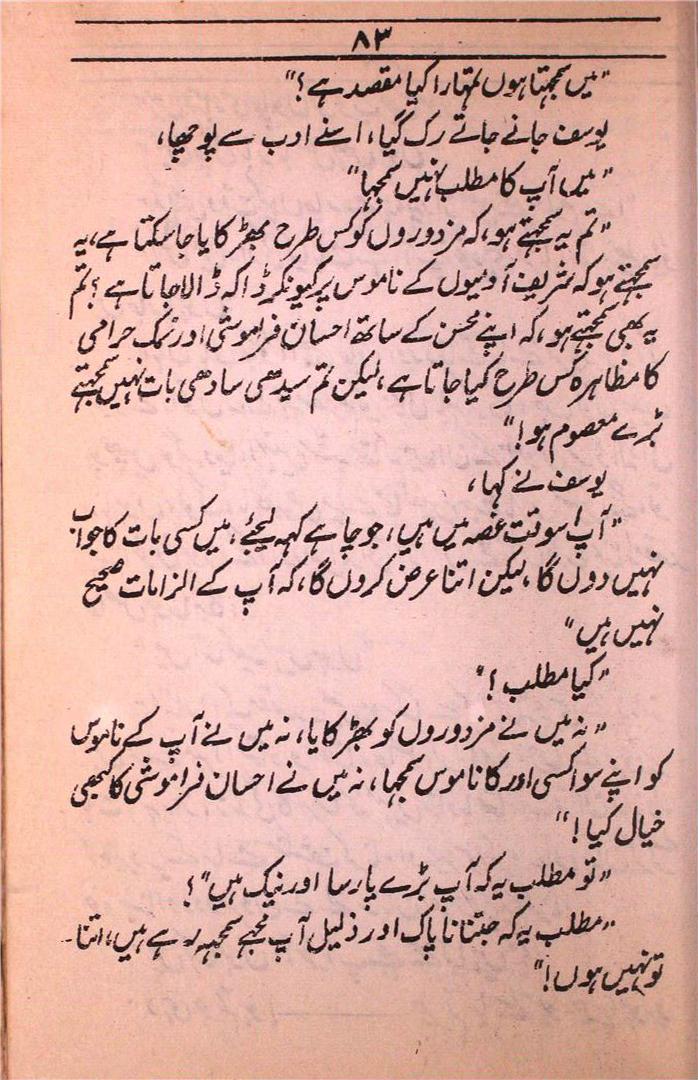 ۸۳
"میں سمجھتا ہوں تمہارا کیا مقصد ہے؟"
یوسف جاتے جاتے رک گیا، اسنے ادب سے پوچھا،
"میں آپ کا مطلب نہیں سمجھا"
"تم یہ سمجھتے ہو، کہ مزدوروں کو کس طرح بھڑکایا جا سکتا ہے، یہ
سمجھتے ہو کہ شریف آدمیوں کے ناموس پر کیونکر ڈاکہ ڈالا جاتا ہے؟ تم
یہ بھی سمجھتے ہو، کہ اپنے محسن کے ساتھ احسان فراموشی اور نمک حرامی
کا مظاہرہ کس طرح کیا جاتا ہے، لیکن تم سیدھی سادھی بات نہیں سمجھتے
بڑے معصوم ہو!"
یوسف نے کہا،
"آپ اسوقت غصہ میں ہیں، جو چاہے کہہ لیجئے، میں کسی بات کا جواب
نہیں دوں گا، لیکن اتنا عرض کروں گا، کہ آپ کے الزامات صحیح
نہیں ہیں"
"کیا مطلب؟"
"نہ میں نے مزدوروں کو بھڑکایا، نہ میں نے آپ کے ناموس
کو اپنے سوا کسی اور کا ناموس سمجھا، نہ میں نے احسان فراموشی کا کبھی
خیال کیا!"
"تو مطلب یہ کہ آپ بڑے پارسا اور نیک ہیں"؟
"مطلب یہ کہ جتنا ناپاک اور ذلیل آپ مجھے سمجھ رہے ہیں، اتنا۔
تو نہیں ہوں!"